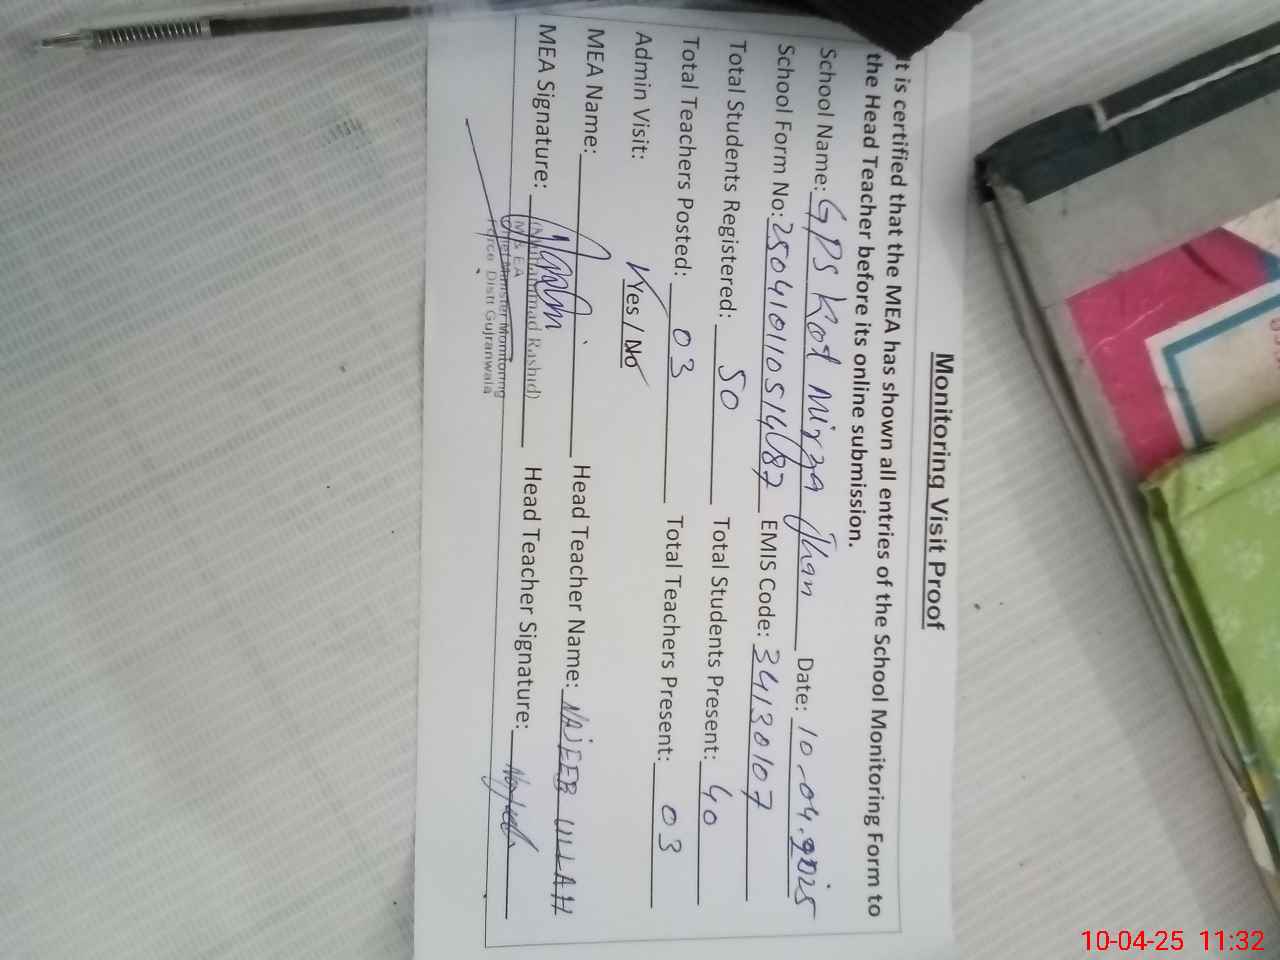 Monitoring Visit Proof
It is certified that the MEA has shown all entries of the School Monitoring Form to
the Head Teacher before its online submission.
School Name: GPS Kot Mirza Jhan Date: 10-04.2025
School Form No: EMIS Code: 34130107
Total Students Registered: 50 Total Students Present: 40
Total Teachers Posted: 03 Total Teachers Present: 03
Admin Visit: Yes / No
MEA Name: Head Teacher Name: NAJEEB ULLAH
MEA Signature: Head Teacher Signature:
(Muhammad Rashid)
M & EA
Chief Minister Monitoring
Force Distt Gujranwala
10-04-25 11:32